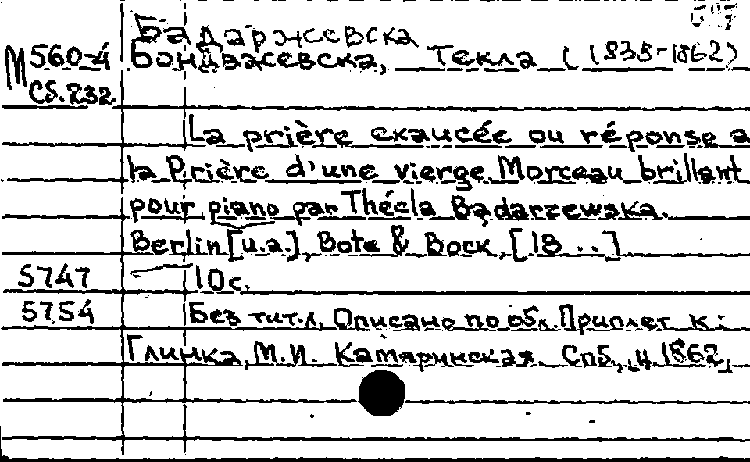 Бадаржевска
М 560-4 Бондажевска, Текла (1838-1862)
Сб.232
La prière exaucée ou réponse a
la Prière d'une vierge. Morceau brillant
pour piano par Thécla Bądarzewska.
Berlin [u.a.], Bote & Bock, [18 ..]
5747 10 с.
5754 Без тит.л. Описано по обл. Приплет. к:
Глинка, М.И. Камаринская. Спб., ц. 1862.